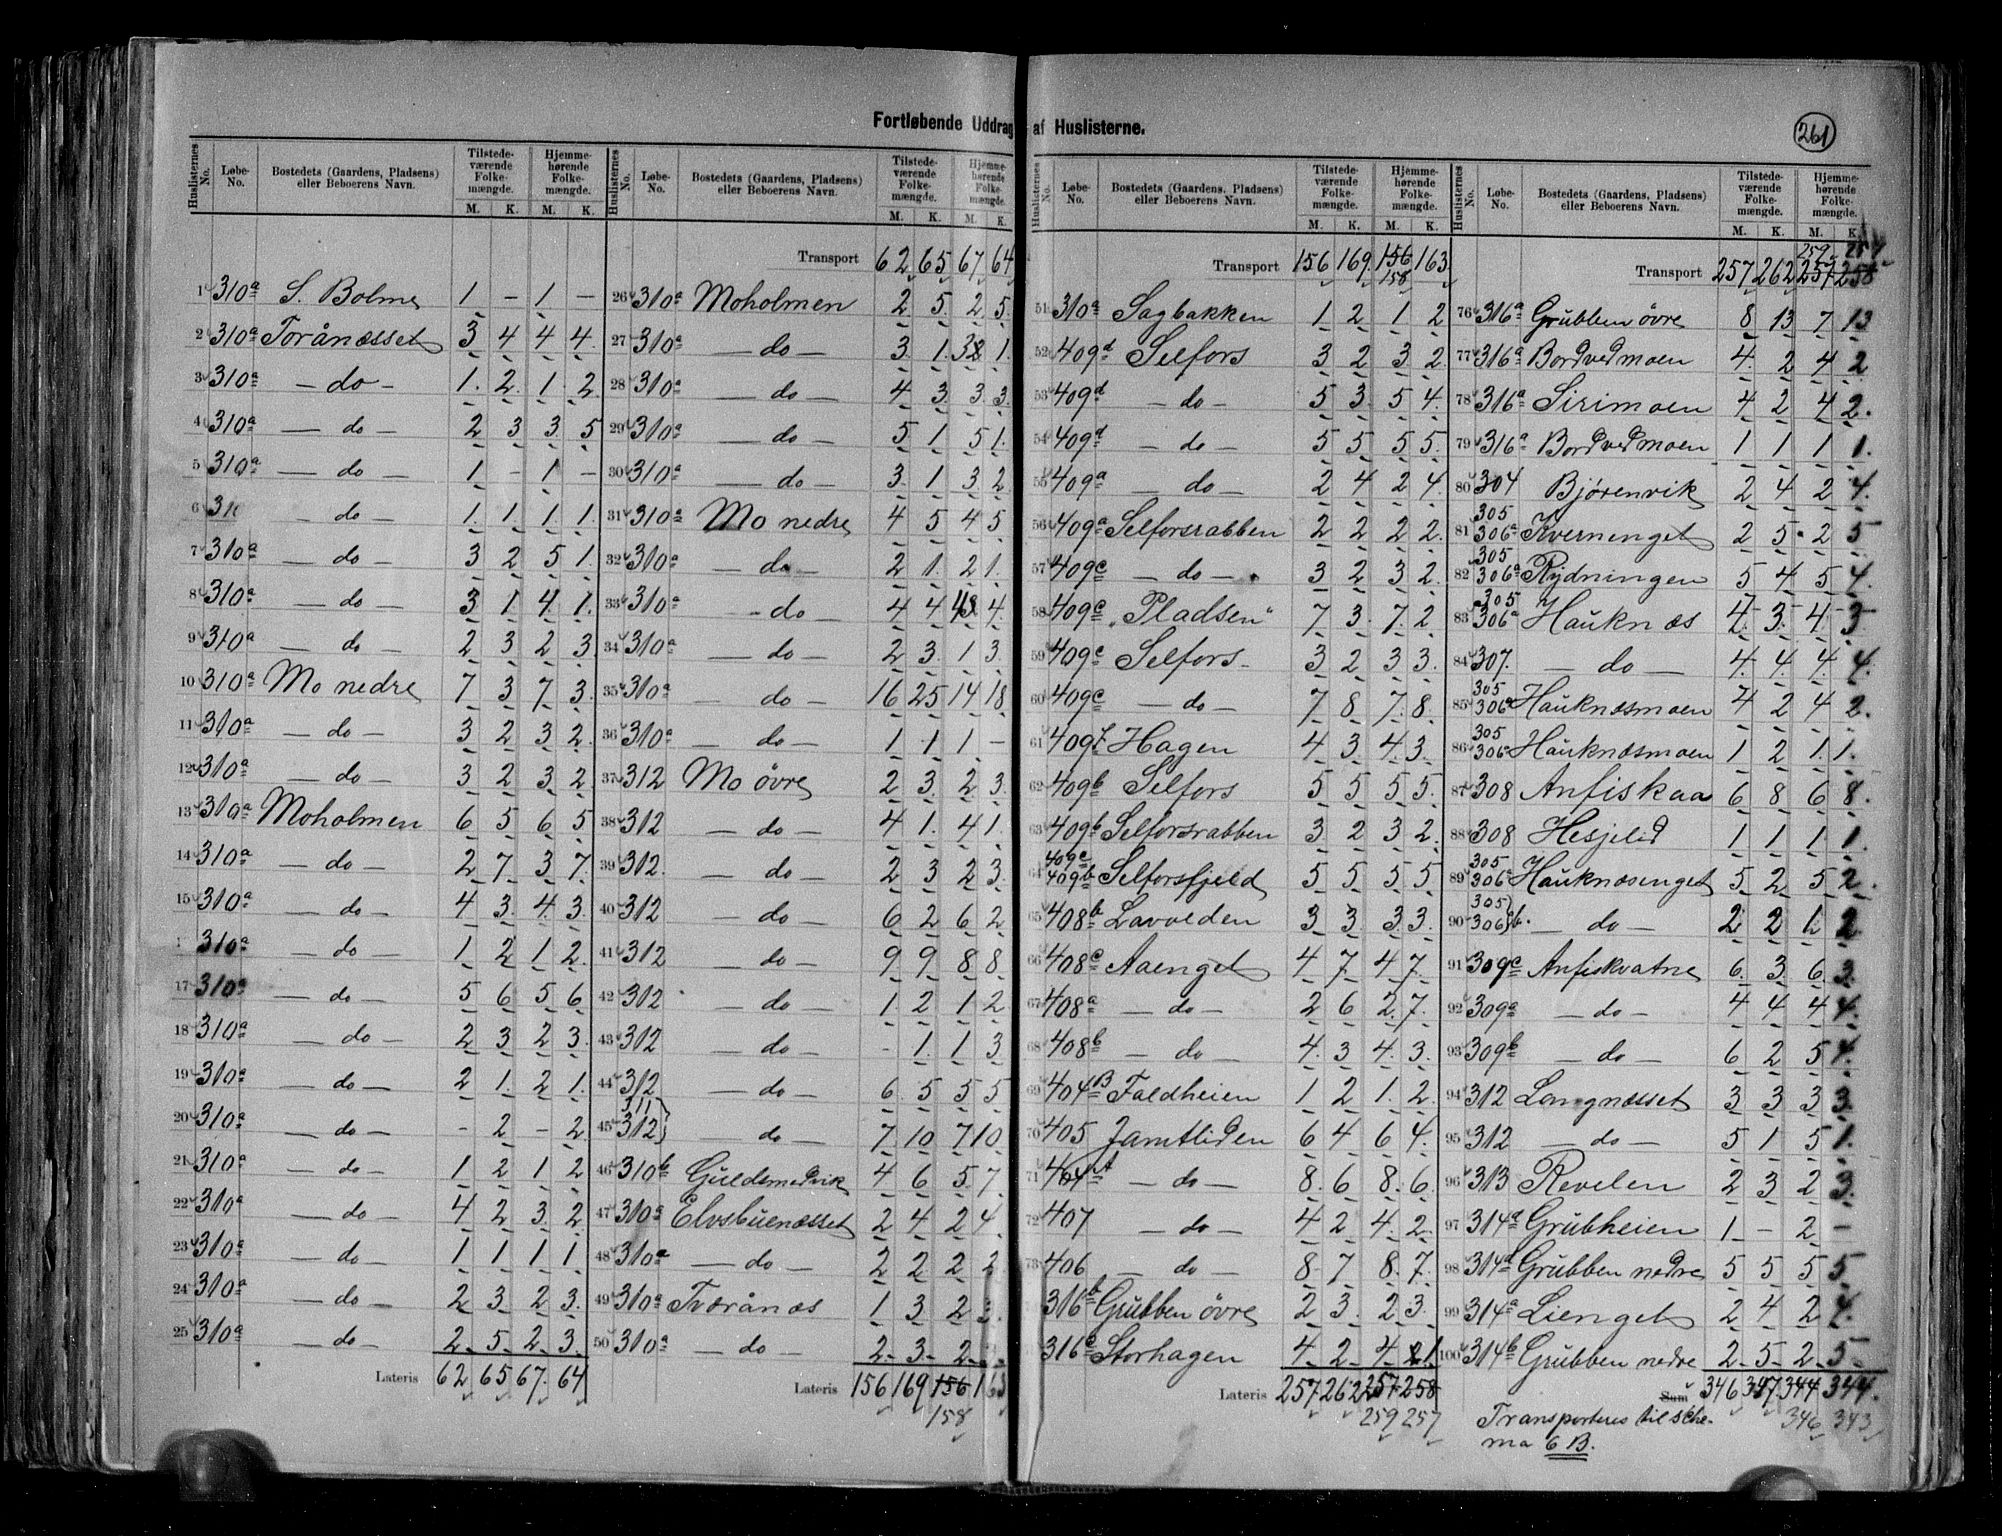 261
Fortløbende Uddrag af Huslisterne.
Huslisternes No. Løbe-No. Bostedets (Gaardens, Pladsens) eller Beboerens Navn. Tilstedeværende Folkemængde. M. K. Hjemmehørende Folkemængde. M. K.
1 310a S. Bolme 1 – 1 –
2 310a Torånæsset 3 4 4 4
3 310a – do – 1 2 1 2
4 310a – do – 2 3 3 5
5 310a – do – 1 - 1 -
6 – do – 1 1 1 1
7 310a – do – 3 2 5 1
8 310a – do – 3 1 4 1
9 310a – do – 2 3 2 3
10 310a Mo nedre 7 3 7 3
11 310a – do – 3 2 3 2
12 310a – do – 3 2 3 2
13 310a Moholmen 6 5 6 5
14 310a – do – 2 7 3 7
15 310a – do – 4 3 4 3
310a – do – 1 2 1 2
17 310a – do – 5 6 5 6
18 310a – do – 2 3 2 3
19 310a – do – 2 1 2 1
20 310a – do – - 2 - 2
21 310a – do – 1 2 1 2
22 310a – do – 4 2 3 2
23 310a – do – 1 1 1 1
24 310a – do – 2 3 2 3
25 310a – do – 2 5 2 3
Lateris 62 65 67 64
Huslisternes No. Løbe-No. Bostedets (Gaardens, Pladsens) eller Beboerens Navn. Tilstedeværende Folkemængde. M. K. Hjemmehørende Folkemængde. M. K.
Transport 62 65 67 64
26 310a Moholmen 2 5 2 5
27 310a – do – 3 1 3 1
28 310a – do – 4 3 3 3
29 310a – do – 5 1 5 1
30 310a – do – 3 1 3 2
31 310a Mo nedre 4 5 4 5
32 310a – do – 2 1 2 1
33 310a – do 4 4 4
34 310a – do – 2 3 1 3
35 310a – do – 16 25 14 18
36 310a – do – 1 1 1 –
37 312 Mo övre 2 3 2 3
38 312 – do – 4 1 4 1
39 312 – do – 2 3 2 3
40 312 – do – 6 2 6 2
41 312 – do – 9 9 8 8
42 312 – do – 1 2 1 2
43 312 – do – - 1 1 3
44 312 – do – 6 5 5 5
45 311 312} do – 7 10 7 10
46 310b Guldsmedvik 4 6 5 7
47 310a Elvsbuenæsset 2 4 2 4
48 310a – do – 2 2 2 2
49 310a Tværånæs 1 3 2
50 310a – do – 2 3 2
Lateris 156 169 156
158
Huslisternes No. Løbe-No. Bostedets (Gaardens, Pladsens) eller Beboerens Navn. Tilstedeværende Folkemængde. M. K. Hjemmehørende Folkemængde. M. K.
Transport 156 169 156 163
158
51 310a Sagbakken 1 2 1 2
52 409d Selfors 3 2 3 2
53 409d – do – 5 3 5 4
54 409d – do – 5 5 5 5
55 409a – do – 2 4 2 4
56 409a Selforsrabben 2 2 2 2
57 409c – do – 3 2 3 2
58 409c "Pladsen" 7 3 7 2
59 409c Selfors 3 2 3 3
60 409c – do – 7 8 7 8
61 409f Hagen 4 3 4 3
62 409b Selfors 5 5 5 5
63 409b Selforsrabben 3 2 3 2
64 409c 409b Selforsfjeld 5 5 5 5
65 408b Lavolden 3 3 3 3
66 408c Aaenget 4 7 4 7
67 408a – do – 2 6 2 7
68 408b – do – 4 3 4 3
69 404B Faldheien 1 2 1 2
70 405 Jamtliden 6 4 6 4
71 404A – do – 8 6 8 6
72 407 – do – 4 2 4 2
73 406 – do – 8 7 8 7
316b Grübben övre 2 3 2 3
316c Storhagen 4 2 4 1
Lateris 257 262 257 258
259 257
Huslisternes No. Løbe-No. Bostedets (Gaardens, Pladsens) eller Beboerens Navn. Tilstedeværende Folkemængde. M. K. Hjemmehørende Folkemængde. M. K.
259 257
Transport 257 262 257 258
76 316a Grübben övre 8 13 7 13
77 316a Bordvedmoen 4 2 4 2
78 316a Sirimoen 4 2 4 2
79 316a Bordvedmoen 1 1 1 1
80 304 Bjørenvik 2 4 2 4
81 305 306a Kvernenget 2 5 2 5
82 305 306a Rydningen 5 4 5 4
83 305 306a Hauknæs 4 3 4 3
84 307. – do – 4 4 4 4
85 305 306a Hauknæsmoen 4 2 4 2
86 305 306a Hauknæsmoen 1 2 1 1
87 308 Anfiskaa 6 8 6 8
88 308 Hesjelid 1 1 1 1
89 305 306a Hauknæsenget 5 2 5 2
90 305 306}b – do – 2 2 1 2
91 309c Anfiskvatne 6 3 6 3
92 309a – do – 4 4 4 4
93 309b – do – 6 2 5 4
94 312 Langnæsset 3 3 3 3
95 312 – do – 5 1 5 1
96 313 Revelen 2 3 2 3
97 314a Grübheien 1 – 2 –
98 314d Grübben nedre 5 5 5 5
99 314a Lienget 2 4 2 4
100 314b Grübben nedre 2 5 2 5
Sum 346 347 344 344
346 343
Transporteres til sche-
ma 6 B.